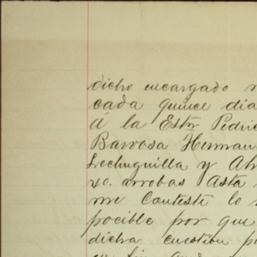 dicho encargado
cada quince dia
á la Estn Pedric
Barrosa Herman
Lechuguilla y
40. arrobas Asta
me Conteste lo
pocible por que
dicha cuestion